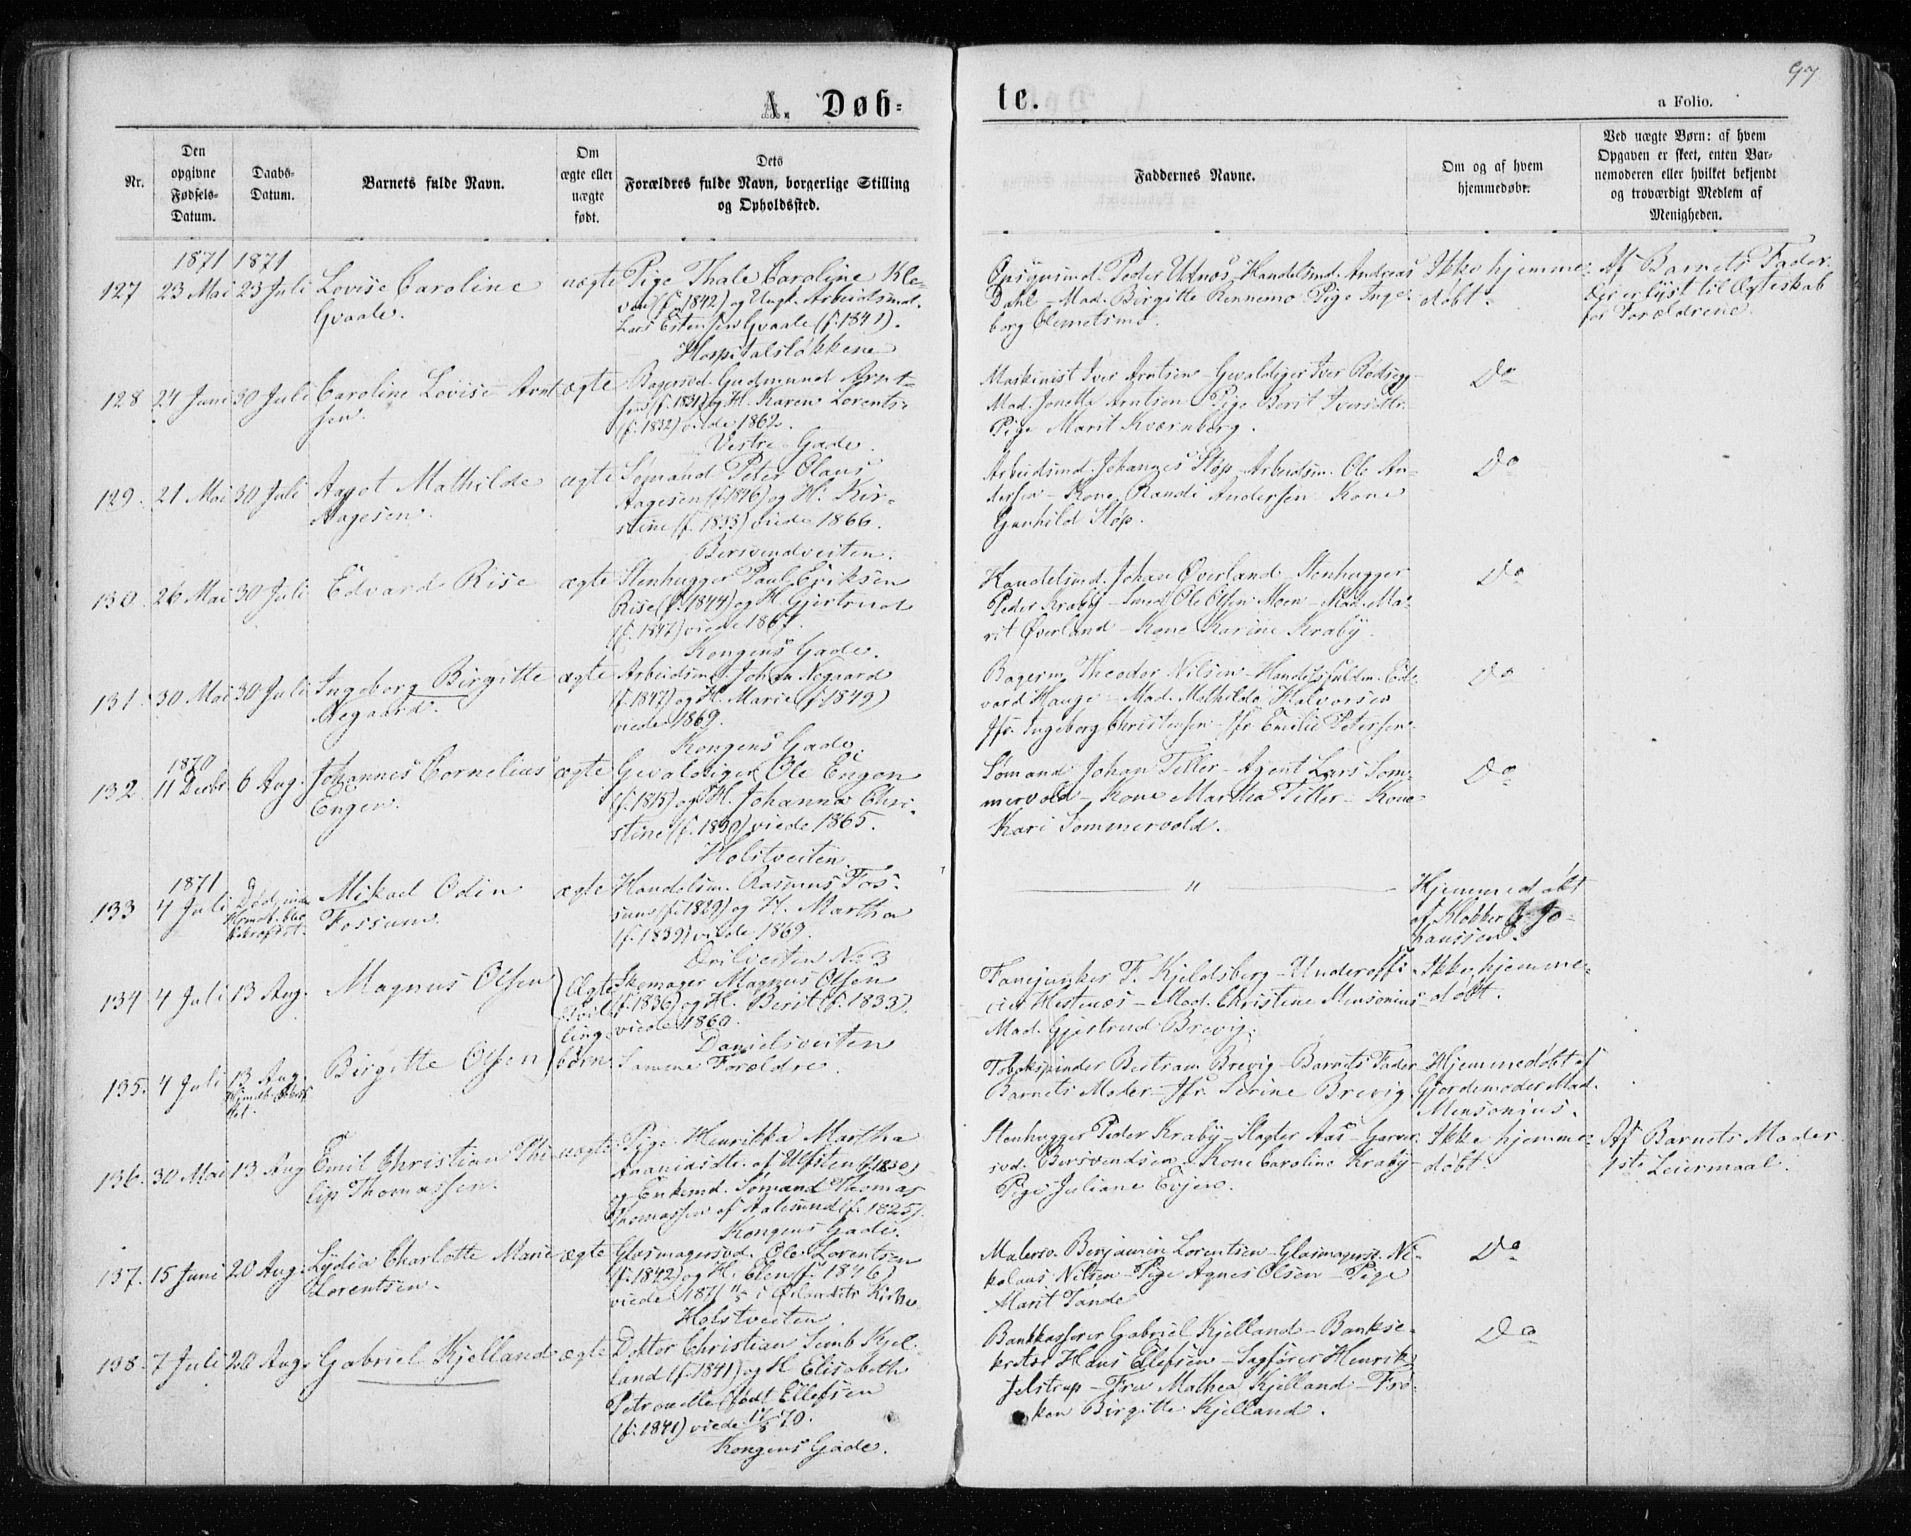 97
A. Døb-
te.
a Folio.
Nr.
Den
opgivne
Fødsels-
Datum.
Daabs-
Datum.
Barnets fulde Navn.
Om
ægte eller
uægte
født.
Dets
Forældres fulde Navn, borgerlige Stilling
og Opholdssted.
Faddernes Navne.
Om og af hvem
hjemmedøbt.
Ved uægte Børn: af hvem
Opgaven er skeet, enten Bar-
nemoderen eller hvilket bekjendt
og troværdigt Medlem af
Menigheden.
1871 1871
127 23 Mai 23 Juli Lovise Caroline
Gvaale.
uægte Pige Thale Caroline Kle-
(f. 1842) og Ungk. Arbeidsmd.
Lars Estensen Gvaale (f. 1841).
Hospitalsløkkene
Opsynsmd. Peder Utnæs - Handelsmd. Andreas
Dahl - Mad. Birgitte Rennemo - Pige Inge-
borg
Ikke hjemme-
døbt.
Af Barnets Fader.
Der er lyst til Ægteskab
for Forældrene.
128 24 Juni 30 Juli Caroline Lovise Arnt-
sen.
ægte Bagersvd. Gudmund Arnt-
sen (f. 1831) og H. Karen Lorents.
(f. 1832) viede 1862.
Vestre Gade.
Maskinist Iver Arntsen - Gevaldiger Iver Rødsegg
Mad. Jonetta Arntsen - Pige Berit Iversdtr.
Pige Marit Kværnberg.
Do
129. 21 Mai 30 Juli Aagot Mathilde
Aagesen.
ægte Sømand Peter Olaus
Aagesen (f. 1846) og H. Kir-
stine (f. 1833) viede 1866.
Bersvendveiten.
Arbeidsmd. Johannes Støp - Arbeidsm. Ole An-
dersen - Kone Randi Andersen - Kone
Gunhild Støp.
Do
130. 26 Mai 30 Juli Edvard Rise
ægte Stenhugger Paul Eriksen
Rise (f. 1844) og H. Gjertrud
(f. 1842) viede 1867.
Kongens Gade.
Handelsmd. Johan Øverland - Stenhugger
Peder Kraby - Smed Ole Olsen Moen - Mad. Ma-
rit Øverland - Kone Karine Kraby.
Do
131. 30 Mai 30 Juli Ingeborg Birgitte
Negaard.
ægte Arbeidsmd. Johan Negaard
(f. 1847) og H. Marie (f. 1849)
viede 1869.
Kongens Gade.
Bagerm. Theodor Nilsen - Handelsfuldm. Ed-
vard Hauge - Mad. Mathilde Halvorsen
Jfr. Ingeborg Christensen - Jfr. Emilie Petersen.
Do
1870
132. 11 Decbr 6 Aug. Johannes Cornelius
Engen.
ægte Gevaldiger Ole Engen
(f. 1815) og H. Johanna Chri-
stine (f. 1830) viede 1865.
Holstveiten.
Sømand Johan Tiller - Agent Lars Som-
mervold - Kone Martha Tiller - Kone
Kari Sommervold.
Do
1871
133 4 Juli Død inden
Hjmdb. blev
bekræftet.
Mikael Odin
Fossum.
ægte Handelsm. Rasmus Fos-
sum (f. 1829) og H. Martha
(f. 1839) viede 1869.
Veiten No 3
"
Hjemmedøbt
af Klokker Jo-
hanssen.
134 4 Juli 13 Aug. Magnus Olsen
Ægte
tvil-
ling-
børn.
Skomager Magnus Olsen
(f. 1836) og H. Berit (f. 1833).
viede 1860.
Danielsveiten
Fanejunker F. Kjeldsberg - Underoffi-
cer Hestnæs - Mad. Christine Mensonius
Mad. Gjertrud Brevig.
Ikke hjemme-
døbt.
135. 4 Juli 13 Aug.
Birgitte Olsen
Samme Forældre.
Tobakspinder Bertram Brevig - Barnets Fader
Barnets Moder - Jfr. Serine Brevig.
Hjemmedøbt af
Gjordemoder Mad.
Mensonius.
136. 30 Mai 13 Aug Emil Christian Phi-
lip Thomassen.
uægte Pige Henrikka Martha
af Ulfsten (f. 1830)
og Enkemd. Sømand Thomas
Thomassen af Aalesund (f. 1825).
Kongens Gade.
Stenhugger Peder Kraby - Slagter Aas - Garver-
svd. Bersvendsen - Kone Caroline Kraby
Pige Juliane Evjen.
Ikke hjemme-
døbt.
Af Barnets Moder
1ste Leiermaal.
137. 15 Juni 20 Aug. Lydia Charlotte Marie
Lorentsen.
ægte Glasmagersvd. Ole Lorentsen
(f. 1842) og H. Elen (f. 1846)
viede 1871 i Kirke.
Holstveiten.
Malersv. Benjamin Lorentsen - Glasmagersv. Ni-
kolaus Nilsen - Pige Agnes Olsen - Pige
Marit Sande
Do
138. 7 Juli 20 Aug. Gabriel Kjelland
ægte Doktor Christian Semb Kjel-
land (f. 1841) og H. Elisabeth
Petronelle (født Ellefsen
(f. 1841) viede 70.
Kongens Gade.
Bankkasserer Gabriel Kjelland - Bankse-
kretær Hans Ellefsen - Sagfører Henrik
Jelstrup - Fru Mathea Kjelland - Frø-
ken Birgitte Kjelland.
Do